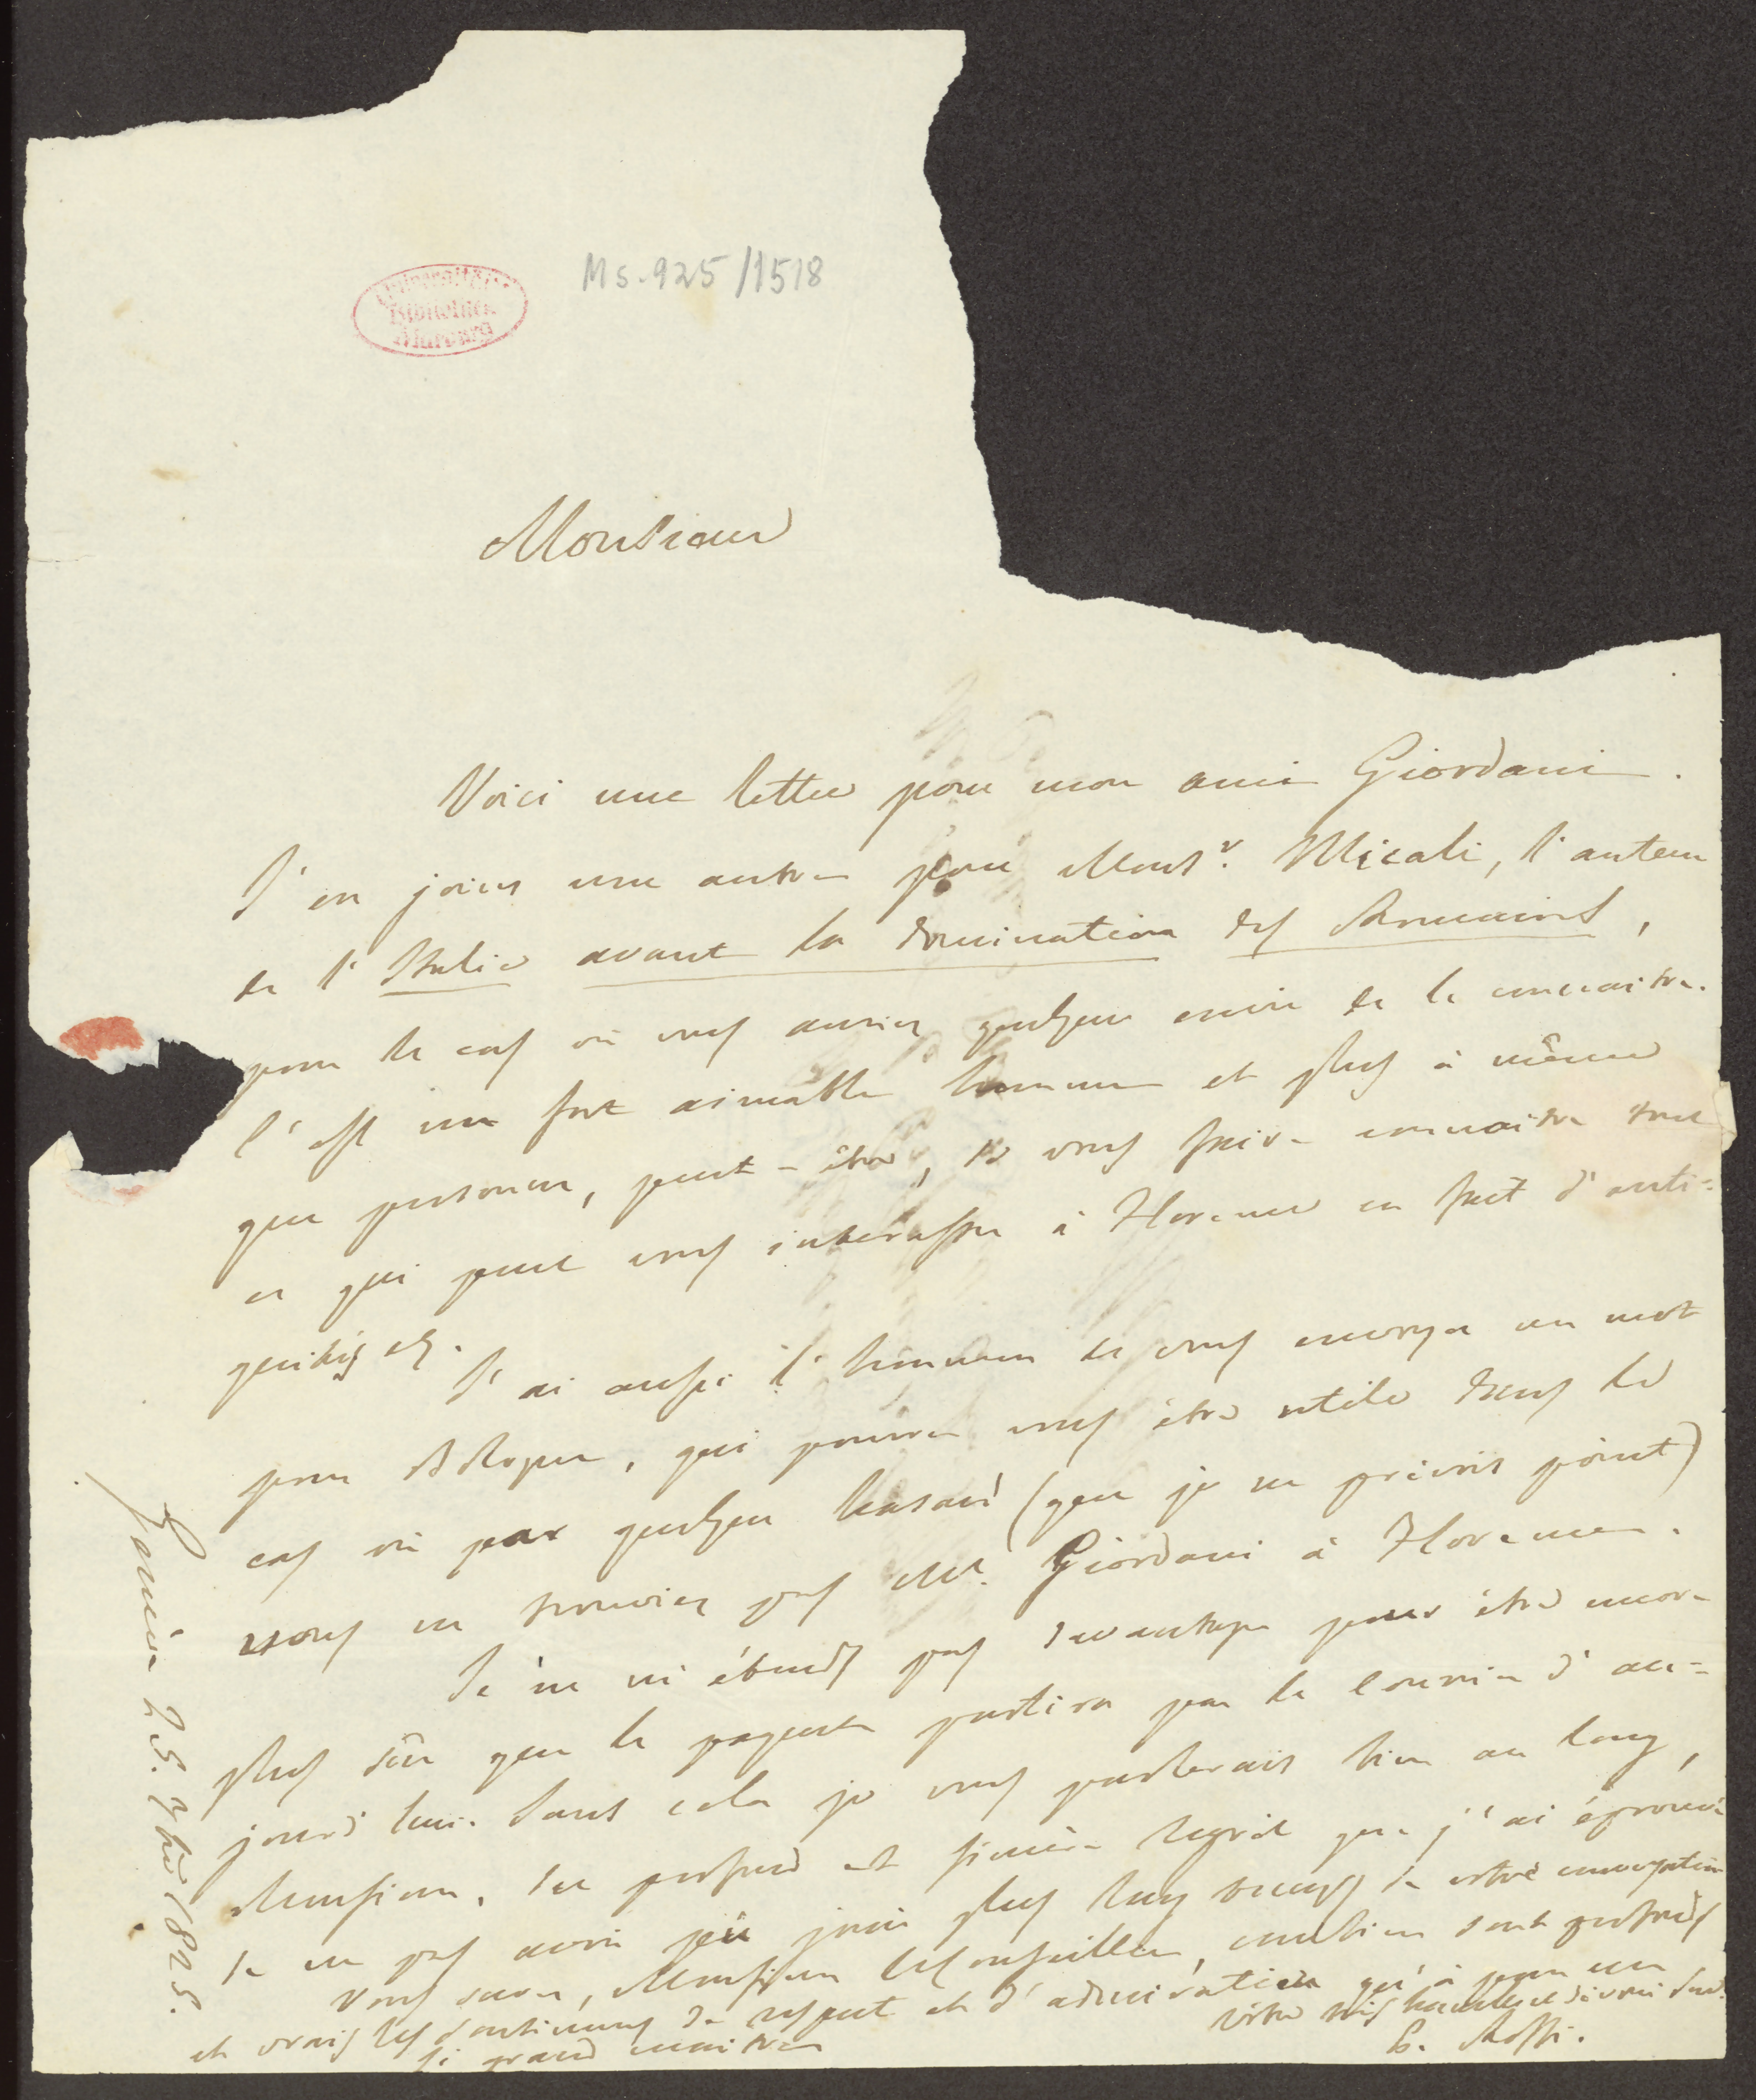 Ms. 925/1518
Universitäts
Bibliothek
Marburg
Monsieur
Voici une lettre pour mon ami Giordani.
J'en joins une autre pour Monsr. Micali, l'auteur
de l'Italie avant la domination des Romains,
pour le cas où vous auriez quelque envie de le connaitre.
C'est un fort aimable homme et plus à même
que personne, peut-être, de vous faire connaitre tout
ce qui peut vous intéresser à Florence en fait d'anti=
quités etc.
J'ai aussi l'honneur de vous envoyer un mot
pour Bologne, qui pourra vous être utile dans le
cas où par quelque hasard (que je ne prévois point)
vous ne trouviez pas Mr. Giordani à Florence.
Je ne m'étends pas davantage pour être encore
plus sûr que le paquet partira par le Courrier d'au=
jourd'hui. Sans cela je vous parlerais bien au long,
Monsieur, du profond et sincère regret que j'ai éprouvé
de ne pas avoir pû jouir plus long temps de votre conversation
Vous savez, Monsieur le Conseiller, combien sont profonds
et vrais les sentimens de respect et d'admiration qu'a pour un
si grand maitre
votre très humble et dévoué serv.
P. Rossi.
Genève 25. 7bre 1825.